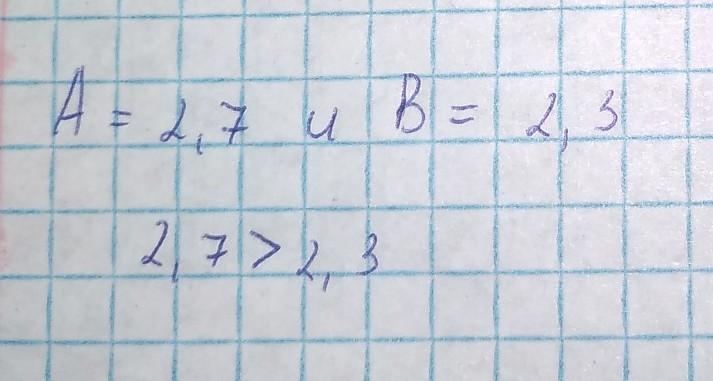 A = 2,7 и B = 2,3
2,7 > 2,3